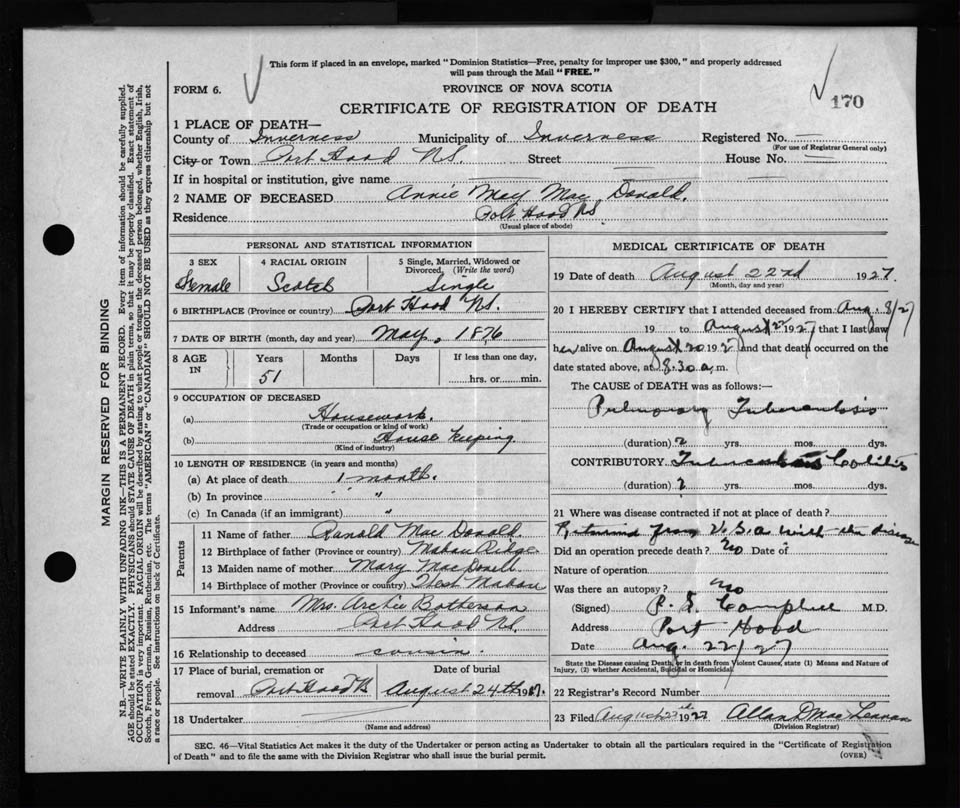 This form if placed in an envelope, marked "Dominion Statistics—Free, penalty for improper use $300," and properly addressed
will pass through the Mail "FREE."
FORM 6.
PROVINCE OF NOVA SCOTIA
170
CERTIFICATE OF REGISTRATION OF DEATH
1 PLACE OF DEATH—
County of Inverness Municipality of Inverness Registered No. —
(For use of Registrar General only)
City or Town Port Hood N.S. Street House No. —
If in hospital or institution, give name
2 NAME OF DECEASED Annie May Mac Donald.
Residence Port Hood N.S.
(Usual place of abode)
PERSONAL AND STATISTICAL INFORMATION
3 SEX 4 RACIAL ORIGIN 5 Single, Married, Widowed or
Divorced, (Write the word)
Female Scotch Single
6 BIRTHPLACE (Province or country) Port Hood N.S.
7 DATE OF BIRTH (month, day and year) May, 1876
8 AGE IN Years Months Days If less than one day,
51 hrs. or min.
9 OCCUPATION OF DECEASED
(a) Housework.
(Trade or occupation or kind of work)
(b) House Keeping
(Kind of industry)
10 LENGTH OF RESIDENCE (in years and months)
(a) At place of death 1 month.
(b) In province " "
(c) In Canada (if an immigrant) " "
Parents
11 Name of father Ranald Mac Donald.
12 Birthplace of father (Province or country) Mabou Ridge
13 Maiden name of mother Mary MacDonell
14 Birthplace of mother (Province or country) West Mabou
15 Informant's name Mrs. Archie
Address Port Hood N.S.
16 Relationship to deceased cousin.
17 Place of burial, cremation or Date of burial
removal Port Hood August 24th 1927.
18 Undertaker
(Name and address)
MEDICAL CERTIFICATE OF DEATH
19 Date of death August 22nd 1927.
(Month, day and year)
20 I HEREBY CERTIFY that I attended deceased from Aug. 8/27
19 to August 22 1927 that I last saw
her alive on August 20 1927 and that death occurred on
date stated above, at 8.30 a.m.
The CAUSE of DEATH was as follows:—
Pulmonary Tuberculosis
(duration) 2 yrs. mos. dys.
CONTRIBUTORY
(duration) ? yrs. mos. dys.
21 Where was disease contracted if not at place of death?
Returned from U.S.A with the disease
Did an operation precede death? No Date of
Nature of operation
Was there an autopsy? No
(Signed) Campbell M.D.
Address Port Hood
Date Aug. 22/27
State the Disease causing Death, or in death from Violent Causes, state (1) Means and Nature of
Injury, (2) whether Accidental, Suicidal or Homicidal.
22 Registrar's Record Number
23 Filed August 1927 Allan D Mac Lennan
(Division Registrar)
SEC. 46—Vital Statistics Act makes it the duty of the Undertaker or person acting as Undertaker to obtain all the particulars required in the "Certificate of Registration
of Death" and to file the same with the Division Registrar who shall issue the burial permit.
(OVER)
MARGIN RESERVED FOR BINDING
N.B.—WRITE PLAINLY WITH UNFADING INK—THIS IS A PERMANENT RECORD. Every item of information should be carefully supplied.
AGE should be stated EXACTLY. PHYSICIANS should STATE CAUSE OF DEATH in plain terms, so that it may be properly classified. Exact statement of
OCCUPATION is very important. RACIAL ORIGIN will be described by stating to what people or tongue the deceased person belonged, whether English, Irish,
Scotch, French, German, Russian, Ruthenian, etc. The terms "AMERICAN" or "CANADIAN" SHOULD NOT BE USED as they express citizenship but not
a race or people. See instructions on back of Certificate.